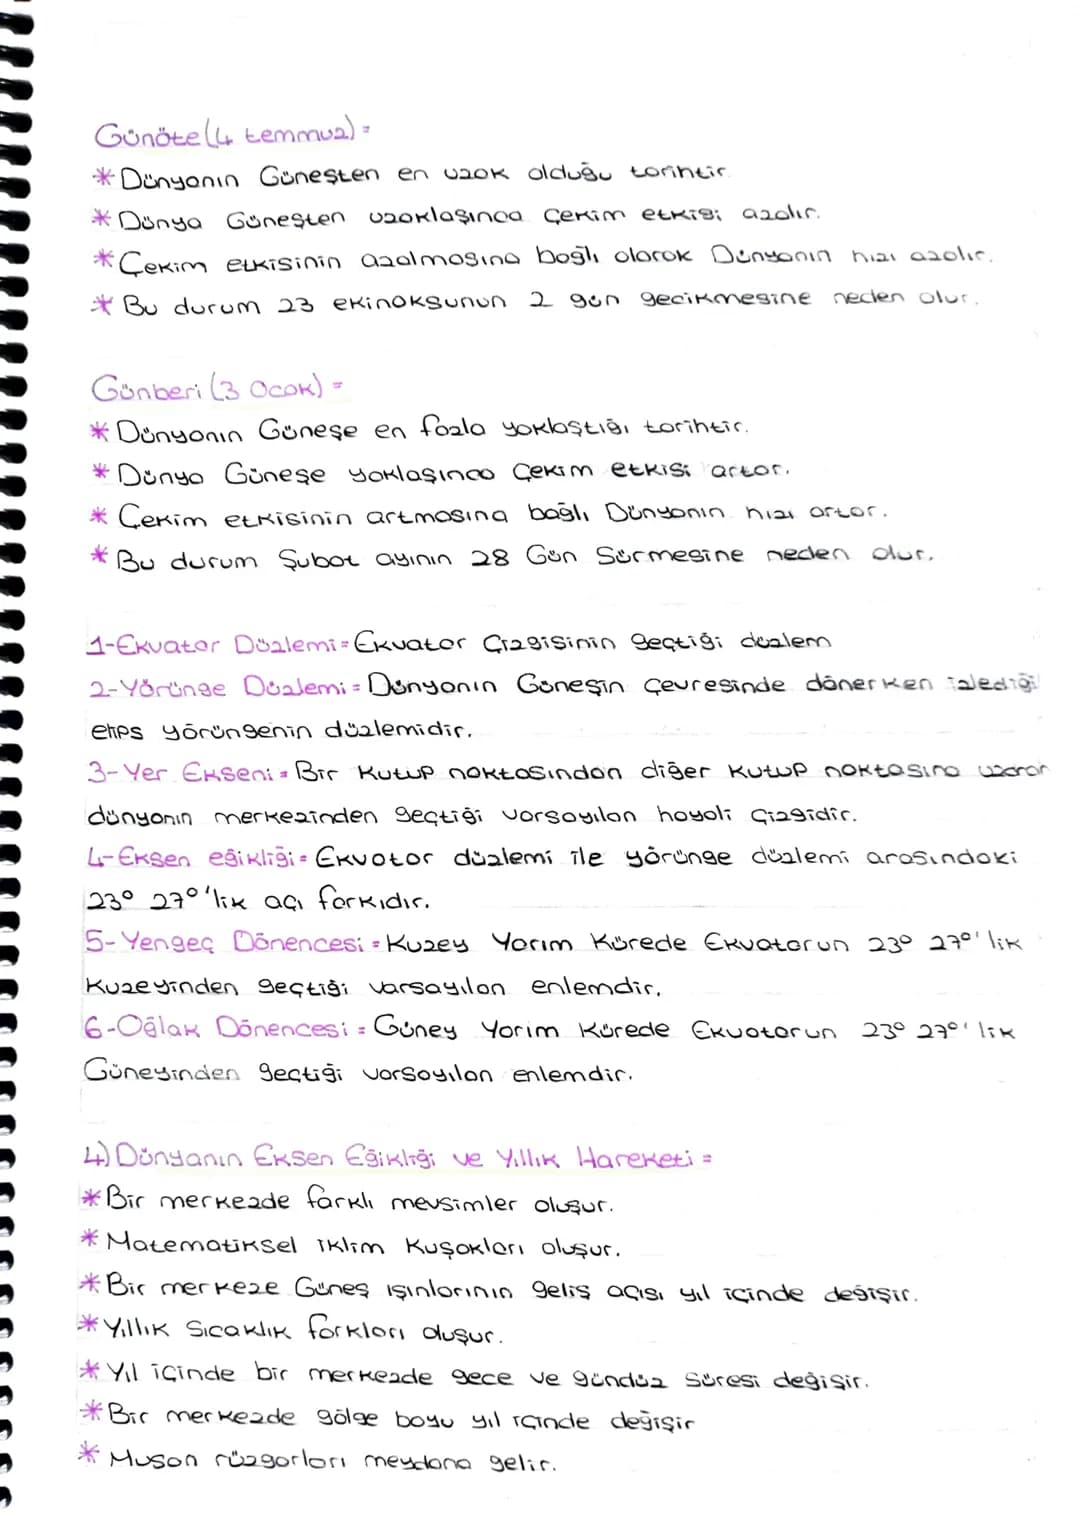 Günöte (4 temmuz) =
* Dünyanın Güneşten en uzak olduğu tarihtir.
* Dünya Güneşten uzaklaşınca Çekim etkisi azalır.
* Çekim etkisinin azalmasına bağlı olarak Dünyanın hızı azalır.
* Bu durum 23 ekinoksunun 2 gün gecikmesine neden olur.
Günberi (3 Ocak) =
* Dünyanın Güneşe en fazla yaklaştığı tarihtir.
* Dünya Güneşe yaklaşınca Çekim etkisi artar.
* Çekim etkisinin artmasına bağlı Dünyanın hızı artar.
* Bu durum Şubat ayının 28 Gün Sürmesine neden olur.
1-Ekvator Düzlemi = Ekvator Çizgisinin geçtiği düzlem
2-Yörünge Düzlemi = Dünyanın Güneşin Çevresinde dönerken izlediği
elips yörüngenin düzlemidir.
3-Yer Ekseni = Bir Kutup noktasından diğer kutup noktasına uzanan
dünyanın merkezinden geçtiği varsayılan hayali Çizgidir.
4-Eksen eğikliği = Ekvator düzlemi ile yörünge düzlemi arasındaki
23° 27°'lik açı farkıdır.
5-Yengeç Dönencesi = Kuzey Yarım Kürede Ekvatorun 23° 27°'lik
Kuzeyinden geçtiği varsayılan enlemdir.
6-Oğlak Dönencesi = Güney Yarım Kürede Ekvatorun 23° 27°'lik
Güneyinden geçtiği varsayılan enlemdir.
4) Dünyanın Eksen Eğikliği ve Yıllık Hareketi =
* Bir merkezde farklı mevsimler oluşur.
* Matematiksel iklim Kuşakları oluşur.
* Bir merkeze Güneş ışınlarının geliş açısı yıl içinde değişir.
* Yıllık Sıcaklık farkları oluşur.
* Yıl içinde bir merkezde gece ve gündüz süresi değişir.
* Bir merkezde gölge boyu yıl içinde değişir
* Muson rüzgarları meydana gelir.